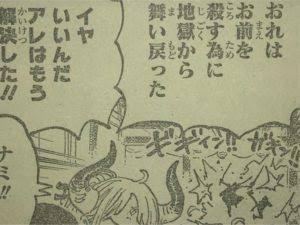 おれは
お前を
殺す為に
地獄から
舞い戻った
イヤ
いいんだ
アレはもう
解決した!!
ギギィン!!
ガキ
ナミ!!